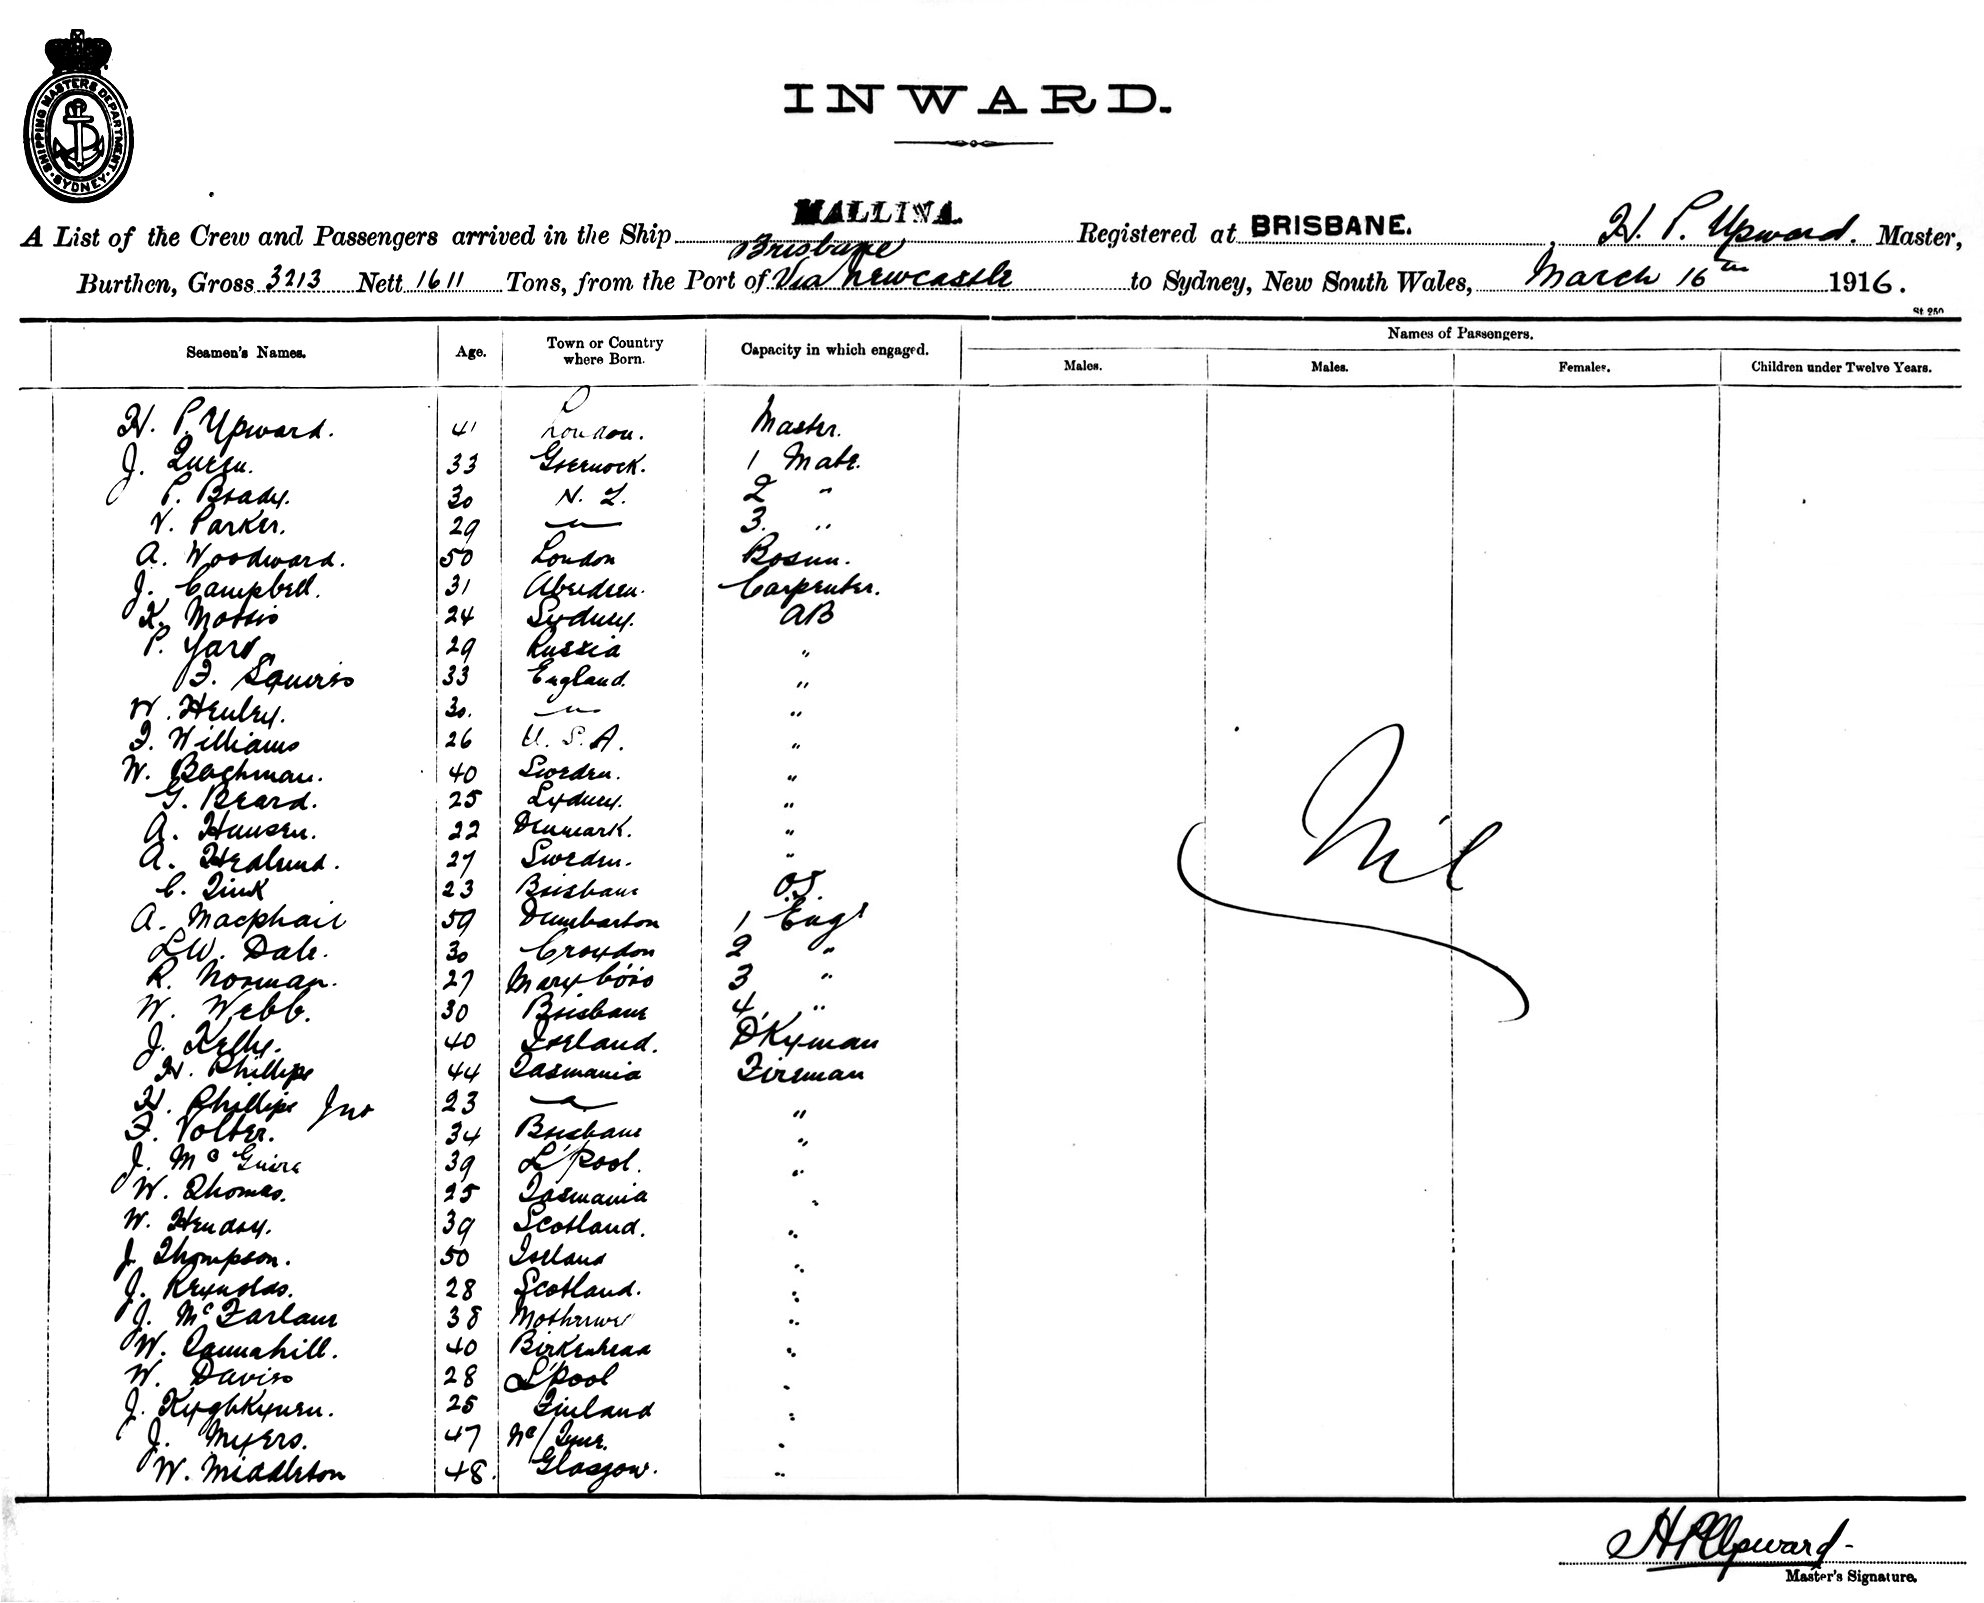 SHIPPING MASTERS DEPARTMENT · SYDNEY ·
INWARD.
A List of the Crew and Passengers arrived in the Ship MALLINA. Registered at BRISBANE. , H. P. Upward. Master,
Burthen, Gross 3213 Nett 1611 Tons, from the Port of Brisbane Via Newcastle to Sydney, New South Wales, March 16th 1916.
St 250
Seamen's Names. Age. Town or Country where Born. Capacity in which engaged. Names of Passengers.
Males. Males. Females. Children under Twelve Years.
H. P. Upward. 41 London. Master.
J. Queen. 33 Greenock. 1 Mate.
P. Brady. 30 N. Z. 2 "
V. Parker. 29 —"— 3. "
A. Woodward. 50 London Bosun.
J. Campbell. 31 Aberdeen. Carpenter.
K. Morris 24 Sydney. AB
P. Yard 29 Russia "
F. Squires 33 England. "
W. Henley. 30. —"— "
F. Williams 26 U. S. A. "
W. Baghman. 40 Sweden. "
G. Beard. 25 Sydney. "
A. Hansen. 22 Denmark. "
A. Hedlund. 27 Sweden. "
C. Fink 23 Brisbane O.S.
A. Macphail 59 Dumbarton 1 Engr
L W. Dale. 30 Croydon 2 "
R. Norman. 27 Mary'boro 3 "
W. Webb. 30 Brisbane 4, "
J. Kelly. 40 Ireland. D'Kyman
H. Phillips 44 Tasmania Fireman
H. Phillips Jnr 23 —"— "
F. Volter. 34 Brisbane "
J. McGuire 39 L'Pool. "
W. Thomas. 25 Tasmania "
W. Hendry. 39 Scotland. "
J. Thompson. 50 Ireland "
J. Reynolds. 28 Scotland. "
J. McFarlane 38 Motherwel "
W. Tannahill. 40 Birkenhead "
W. Davies 28 L'Pool "
J. Kyghkynen. 25 Finland "
J. Myers. 47 Nc/Tyne. "
W. Middleton 48. Glasgow. "
Nil
H P Upward
Master's Signature.